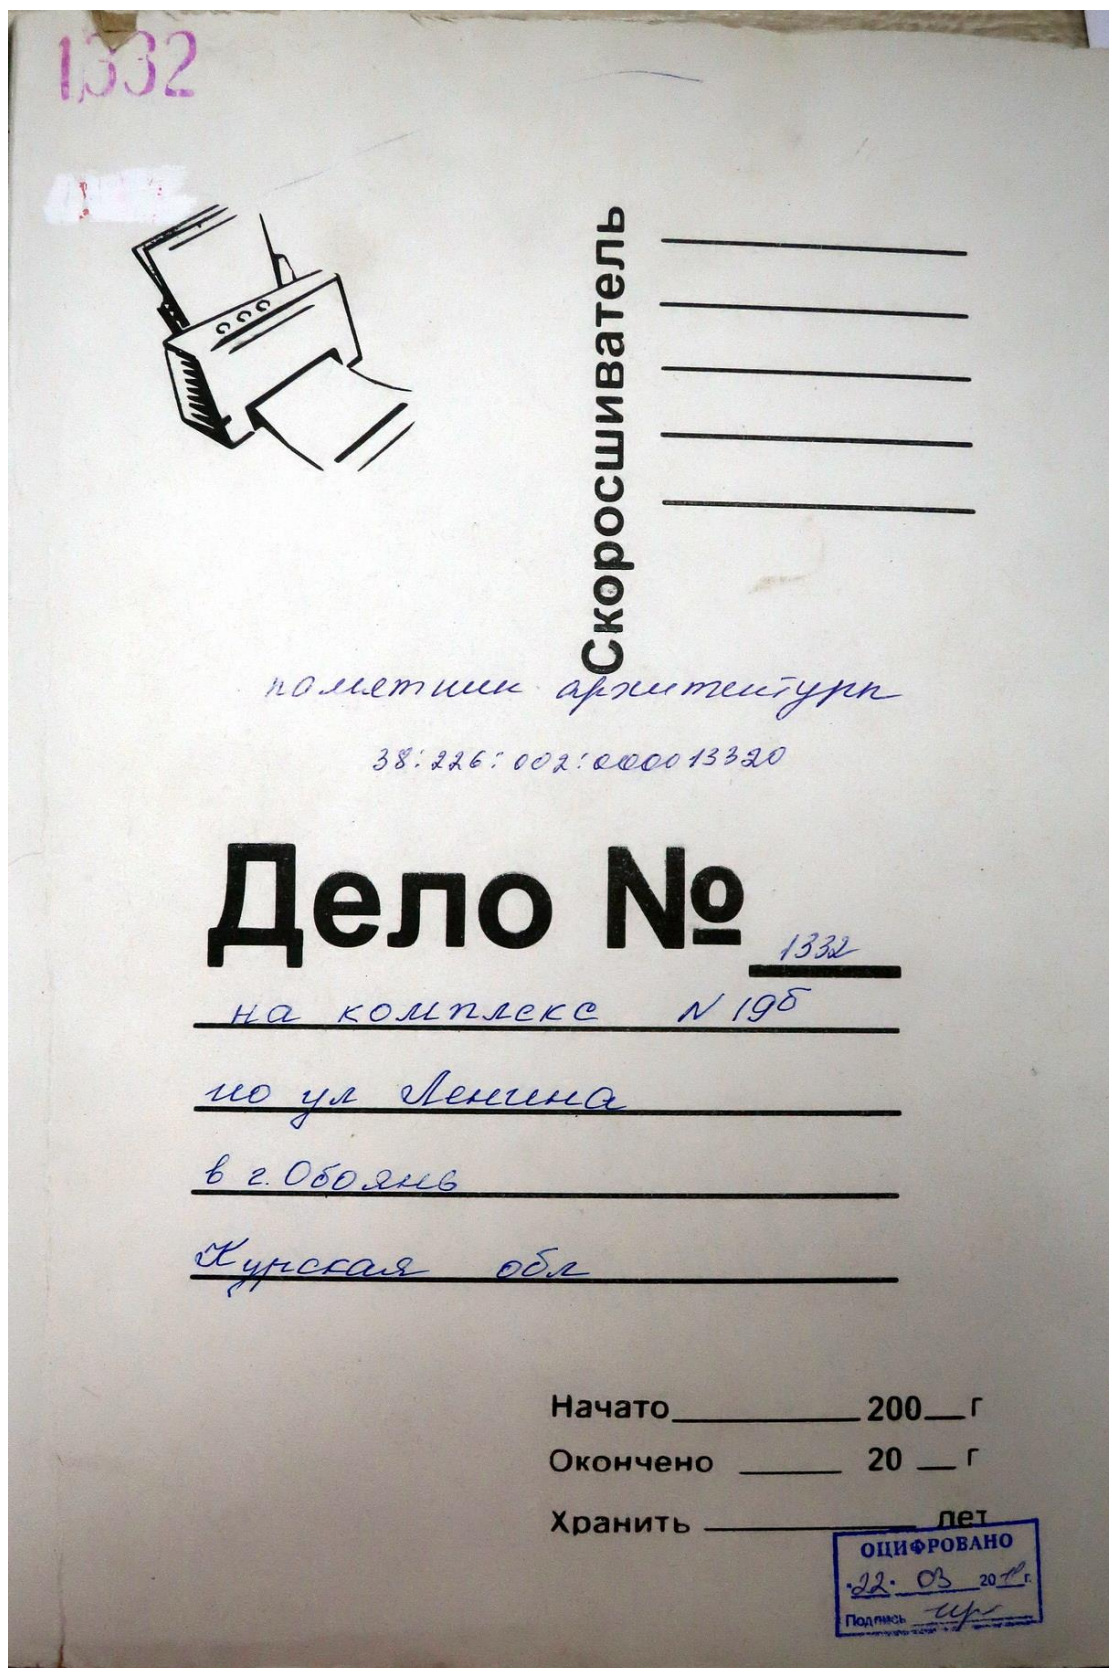 1332
Скоросшиватель
памятник архитектуры
38:226:002:000013320
Дело № 1332
на комплекс N 19б
по ул Ленина
в г. Обоянь
Курская обл
Начато 200 г
Окончено 20 г
Хранить лет
ОЦИФРОВАНО
22. 03 20 г.
Подпись